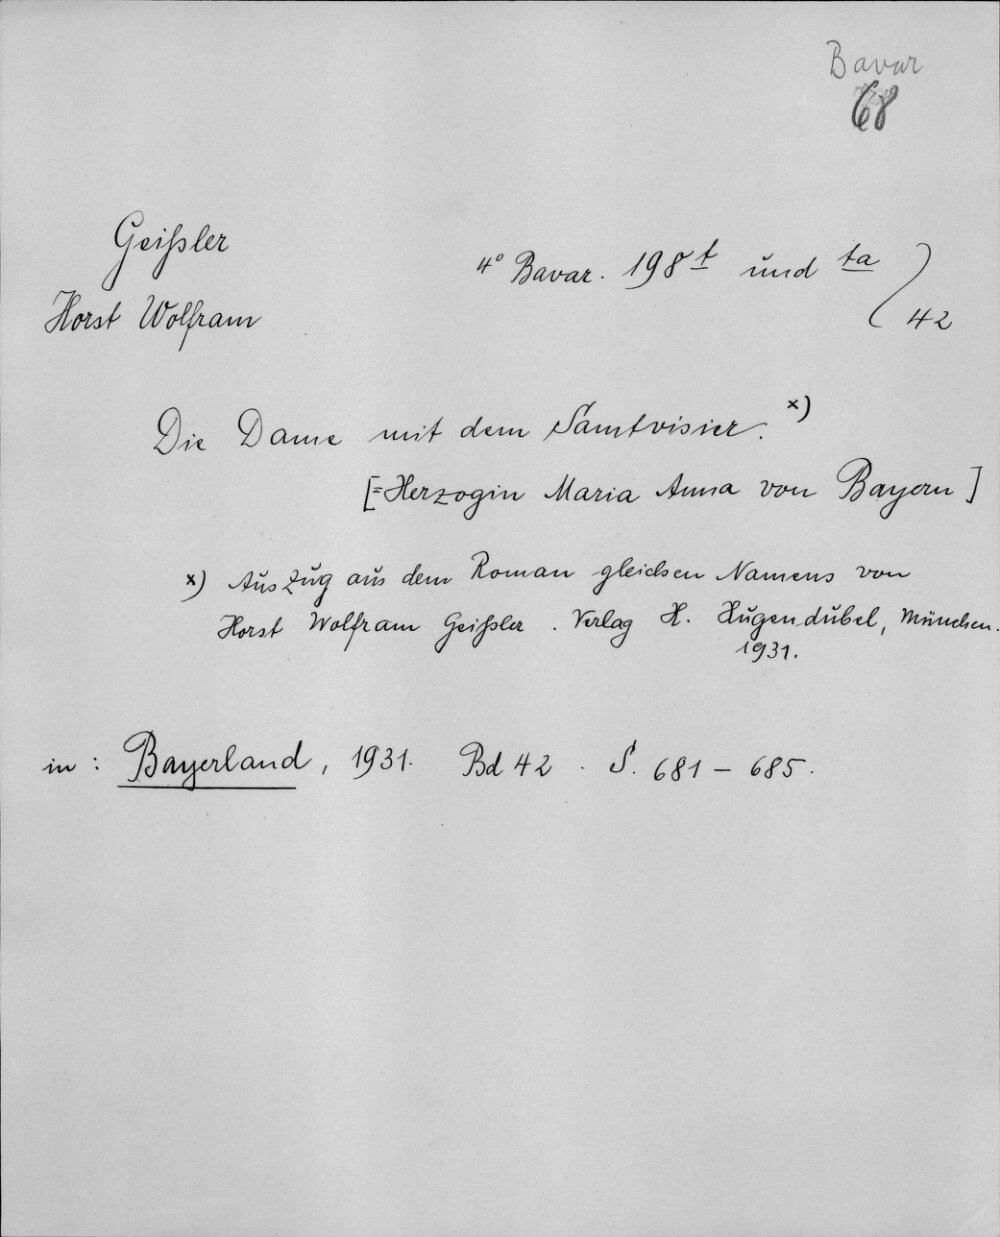 Bavar
68
Geißler
4° Bavar. 198 t und ta
Horst Wolfram
42
Die Dame mit dem Samtvisier. x)
[= Herzogin Maria Anna von Bayern]
x) Auszug aus dem Roman gleichen Namens von
Horst Wolfram Geißler. Verlag H. Hugendubel, München.
1931.
in: Bayerland, 1931. Bd 42. S. 681 - 685.